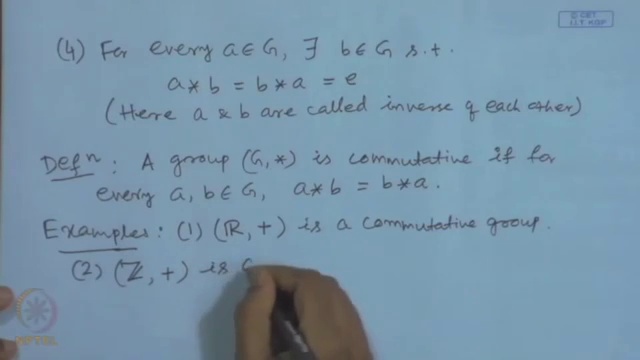 © CET
I.I.T. KGP
(4) For every a ∈ G, ∃ b ∈ G s.t.
a * b = b * a = e
(Here a & b are called inverse of each other)
Defⁿ: A group (G, *) is commutative if for
every a, b ∈ G, a * b = b * a.
Examples: (1) (ℝ, +) is a commutative group.
(2) (ℤ, +) is
NPTEL